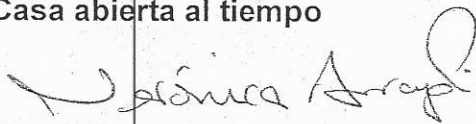 Casa abierta al tiempo
Verónica